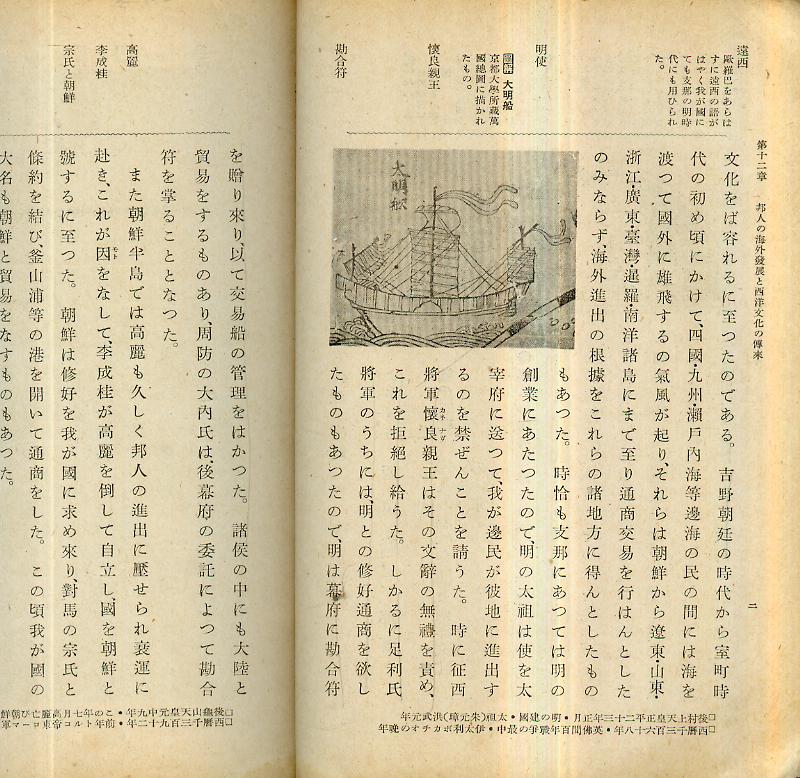 第十二章　邦人の海外發展と西洋文化の傳來
二
遠西
歐羅巴をあらは
すに遠西の語が
はやく我が國に
ても支那の明時
代にも用ひられ
た。
明使
圖解　大明船
京都大學所藏萬
國總圖に描かれ
たもの。
懷良親王
勘合符
文化をば容れるに至つたのである。　吉野朝廷の時代から室町時
代の初め頃にかけて、四國・九州・瀨戸內海等邊海の民の間には海を
渡つて國外に雄飛するの氣風が起り、それらは朝鮮から遼東・山東・
浙江・廣東・臺灣・暹羅・南洋諸島にまで至り通商交易を行はんとした
のみならず、海外進出の根據をこれらの諸地方に得んとしたもの
もあつた。　時恰も支那にあつては明の
創業にあたつたので、明の太祖は使を太
宰府に送つて、我が邊民が彼地に進出す
るのを禁ぜんことを請うた。　時に征西
將軍懷良親王はその文辭の無禮を責め、
カネナガ
これを拒絕し給うた。　しかるに足利氏
將軍のうちには、明との修好通商を欲し
たものもあつたので、明は幕府に勘合符
大明船
□後村上天皇正平二十三年正月・明の建國・太祖(朱元璋)洪武元年
□西曆千三百六十八年・英佛間百年戰爭の最中・伊太利ボカチオの晚年
高麗
李成桂
宗氏と朝鮮
を贈り來り、以て交易船の管理をはかつた。　諸侯の中にも大陸と
貿易をするものあり、周防の大內氏は後幕府の委託によつて勘合
符を掌ることとなつた。
また朝鮮半島では高麗も久しく邦人の進出に壓せられ衰運に
赴き、これが因をなして、李成桂が高麗を倒して自立し、國を朝鮮と
モト
號するに至つた。　朝鮮は修好を我が國に求め來り、對馬の宗氏と
條約を結び、釜山浦等の港を開いて通商をした。　この頃我が國の
大名も朝鮮と貿易をなすものもあつた。
□後龜山天皇元中九年・この年七月高麗亡び朝鮮
□西曆千三百九十二年・前年トルコ帝東ローマ軍